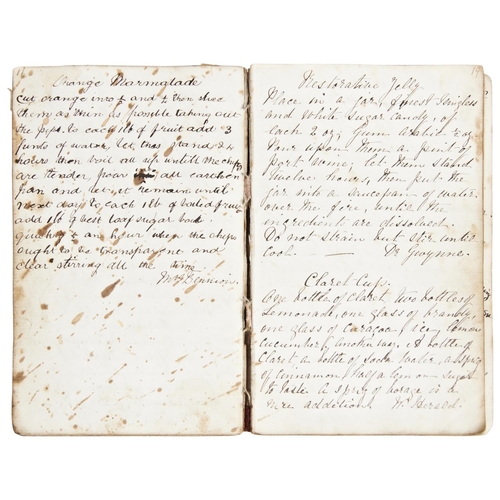 Orange Marmalade
cut orange into ½ and ¼ then slice
them as thin as possible taking out
the pips. to each lb of fruit add 3
pints of water. let this stand 24
hours then boil all up until the chips
are tender, pour into
pan and let it remain until
next day to each 1 lb of boiled fruit
add 1 lb of best loaf sugar boil
quickly ½ an hour when the chips
ought to be transparent and
clear stirring all the time
19
Restorative Jelly
Place in a jar, finest Isinglass
and White Sugar candy, of
each 2 oz, Gum Arabic
Pour upon them a pint of
port wine; let them stand
twelve hours, then put the
jar into a saucepan of water
over the fire, until the
ingredients are dissolved.
Do not strain but stir until
cool. — Dr Gwynne.
Claret Cup.
One bottle of Claret, two bottles of
Lemonade, one glass of brandy,
one glass of Curacoa, ice, lemon
cucumber (another way.) A bottle of
Claret a bottle of soda water, a sprig
of cinnamon, half a lemon - sugar
to taste a sprig of borage is a
nice addition.